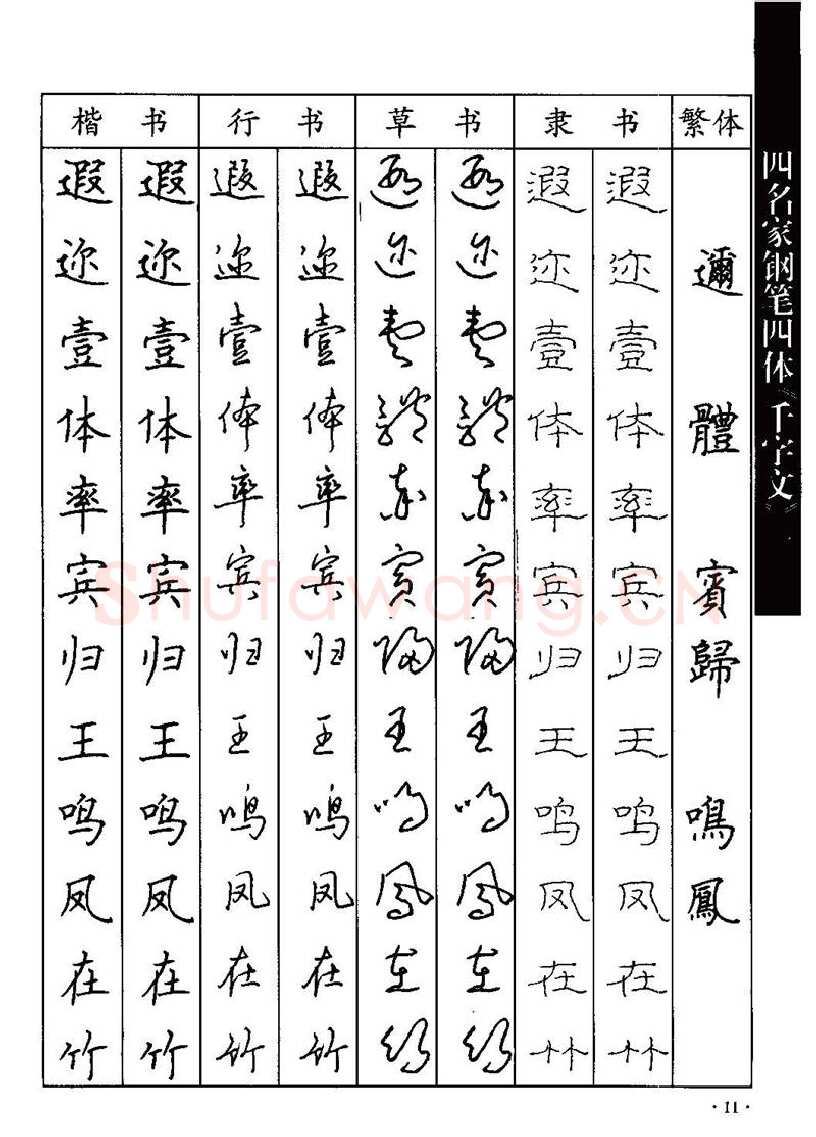 楷书 行书 草书 隶书 繁体
遐迩壹体率宾归王鸣凤在竹
遐迩壹体率宾归王鸣凤在竹
遐迩壹体率宾归王鸣凤在竹
遐迩壹体率宾归王鸣凤在竹
遐迩壹體率賓歸王鸣鳳在竹
遐迩壹體率賓歸王鸣鳳在竹
遐迩壹体率宾归王鸣凤在竹
遐迩壹体率宾归王鸣凤在竹
邇體賓歸鳴鳳
四名家钢笔四体《千字文》
Shufawang.CN
·11·